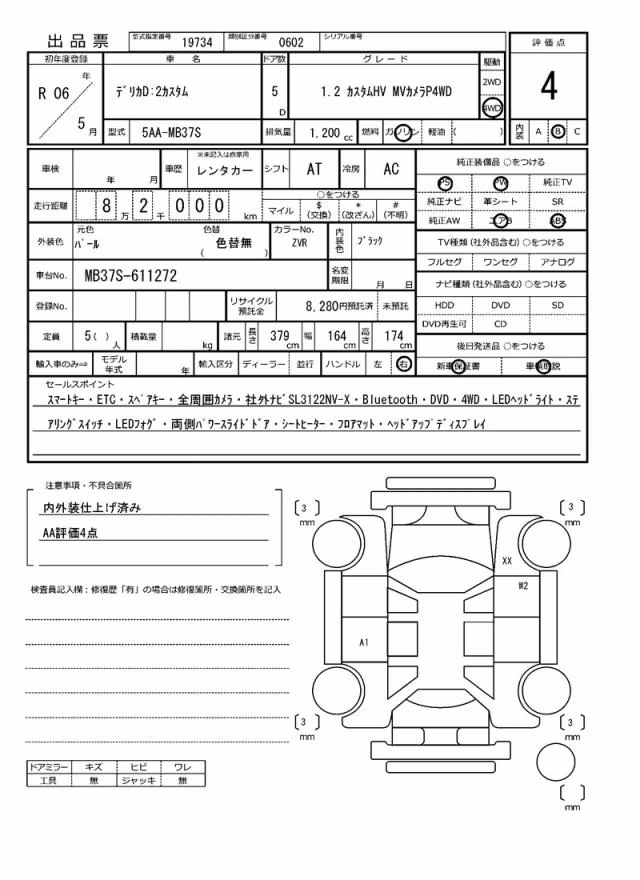 出品票 型式指定番号 19734 類別区分番号 0602 シリアル番号
初年度登録 車名 ドア数 グレード 駆動 評価点
R 06 年 5 月 ﾃﾞﾘｶD:2ｶｽﾀﾑ 5 D 1.2 ｶｽﾀﾑHV MVｶﾒﾗP4WD 2WD 4WD 4
型式 5AA-MB37S 排気量 1.200 cc 燃料 ガソリン 軽油 ( ) 内装 A B C
車検 年 月 車歴 ※未記入は自家用 レンタカー シフト AT 冷房 AC
純正装備品 ○をつける
PS PW 純正TV
純正ナビ 革シート SR
純正AW エアB ABS
走行距離 8 万 2 千 0 0 0 km
○をつける
マイル $ (交換) * (改ざん) # (不明)
外装色 元色 ﾊﾟｰﾙ 色替 色替無 ( ) カラーNo. ZVR 内装色 ﾌﾞﾗｯｸ
TV種類 (社外品含む) ○をつける
フルセグ ワンセグ アナログ
車台No. MB37S-611272 名変期限 月 日
ナビ種類 (社外品含む) ○をつける
HDD DVD SD
DVD再生可 CD
登録No. リサイクル預託金 8,280円預託済 未預託
定員 5( ) 人 積載量 kg 諸元 長さ 379 cm 幅 164 cm 高さ 174 cm
後日発送品 ○をつける
新車保証書 車輌取説
輸入車のみ⇨ モデル年式 年 輸入区分 ディーラー 並行 ハンドル 左 右
セールスポイント
ｽﾏｰﾄｷｰ・ETC・ｽﾍﾟｱｷｰ・全周囲ｶﾒﾗ・社外ﾅﾋﾞSL3122NV-X・Bluetooth・DVD・4WD・LEDﾍｯﾄﾞﾗｲﾄ・ｽﾃ
ｱﾘﾝｸﾞｽｲｯﾁ・LEDﾌｫｸﾞ・両側ﾊﾟﾜｰｽﾗｲﾄﾞﾄﾞｱ・ｼｰﾄﾋｰﾀｰ・ﾌﾛｱﾏｯﾄ・ﾍｯﾄﾞｱｯﾌﾟﾃﾞｨｽﾌﾟﾚｲ
注意事項・不具合箇所
内外装仕上げ済み
AA評価4点
検査員記入欄：修復歴「有」の場合は修復箇所・交換箇所を記入
3 mm
3 mm
XX
W2
A1
3 mm
3 mm
mm
ドアミラー キズ ヒビ ワレ
工具 無 ジャッキ 無